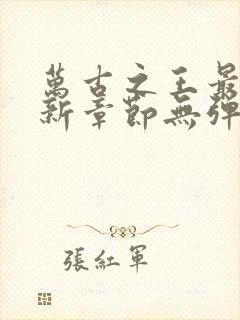 萬古之王最
新章節無彈
張紅軍